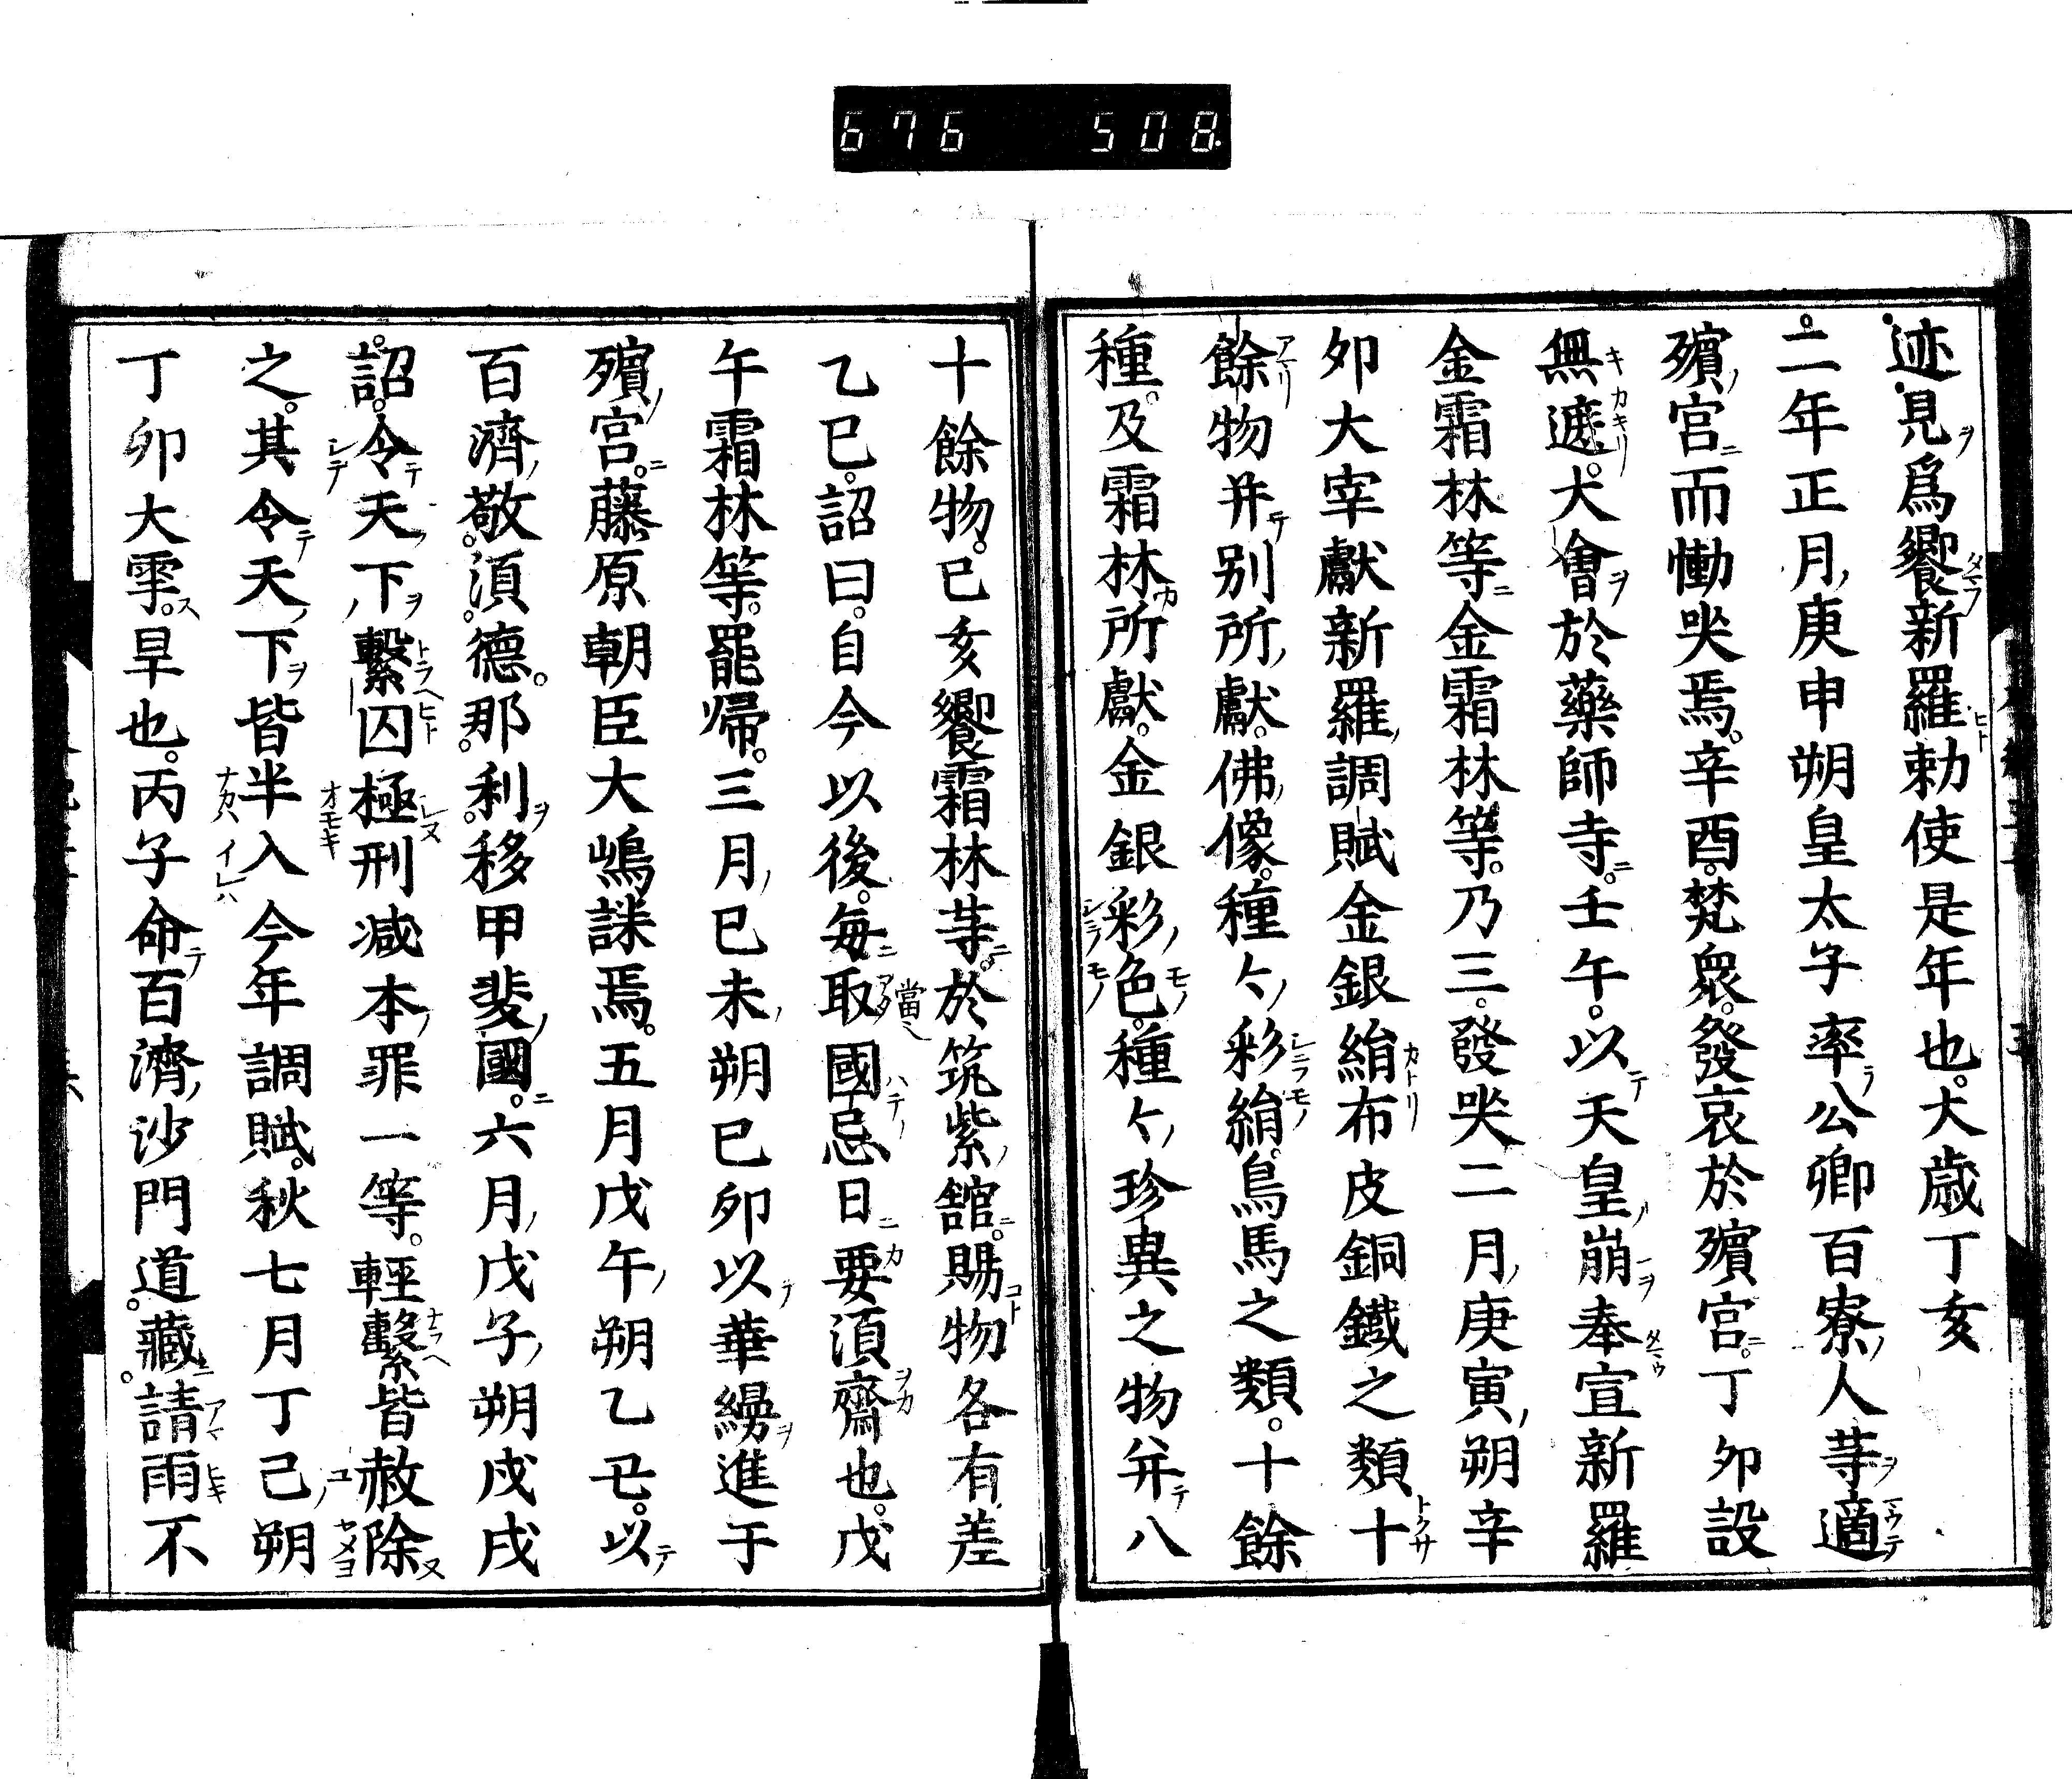 676 508
迹見爲饗新羅勅使是年也大歳丁亥
二年正月庚申朔皇太子率公卿百寮人䓁適
殯宮而慟哭焉辛酉梵衆發哀於殯宮丁夘設
無遮大會於藥師寺壬午以天皇崩奉宣新羅
金霜林等金霜林等乃三發哭二月庚寅朔辛
夘大宰獻新羅調賦金銀絹布皮銅鐵之類十
餘物并別所獻佛像種々彩絹鳥馬之類十餘
種及霜林所獻金銀彩色種々珍異之物并八
十餘物己亥饗霜林䓁於筑紫舘賜物各有差
乙巳詔曰自今以後毎取國忌日要須齋也戊
午霜林等罷歸三月己未朔己卯以華縵進于
殯宮藤原朝臣大嶋誄焉五月戊午朔乙丑以
百濟敬須德那利移甲斐國六月戊子朔戊戌
詔令天下繋囚極刑减本罪一等輕繋皆赦除
之其令天下皆半入今年調賦秋七月丁巳朔
丁卯大雩旱也丙子命百濟沙門道藏請雨不